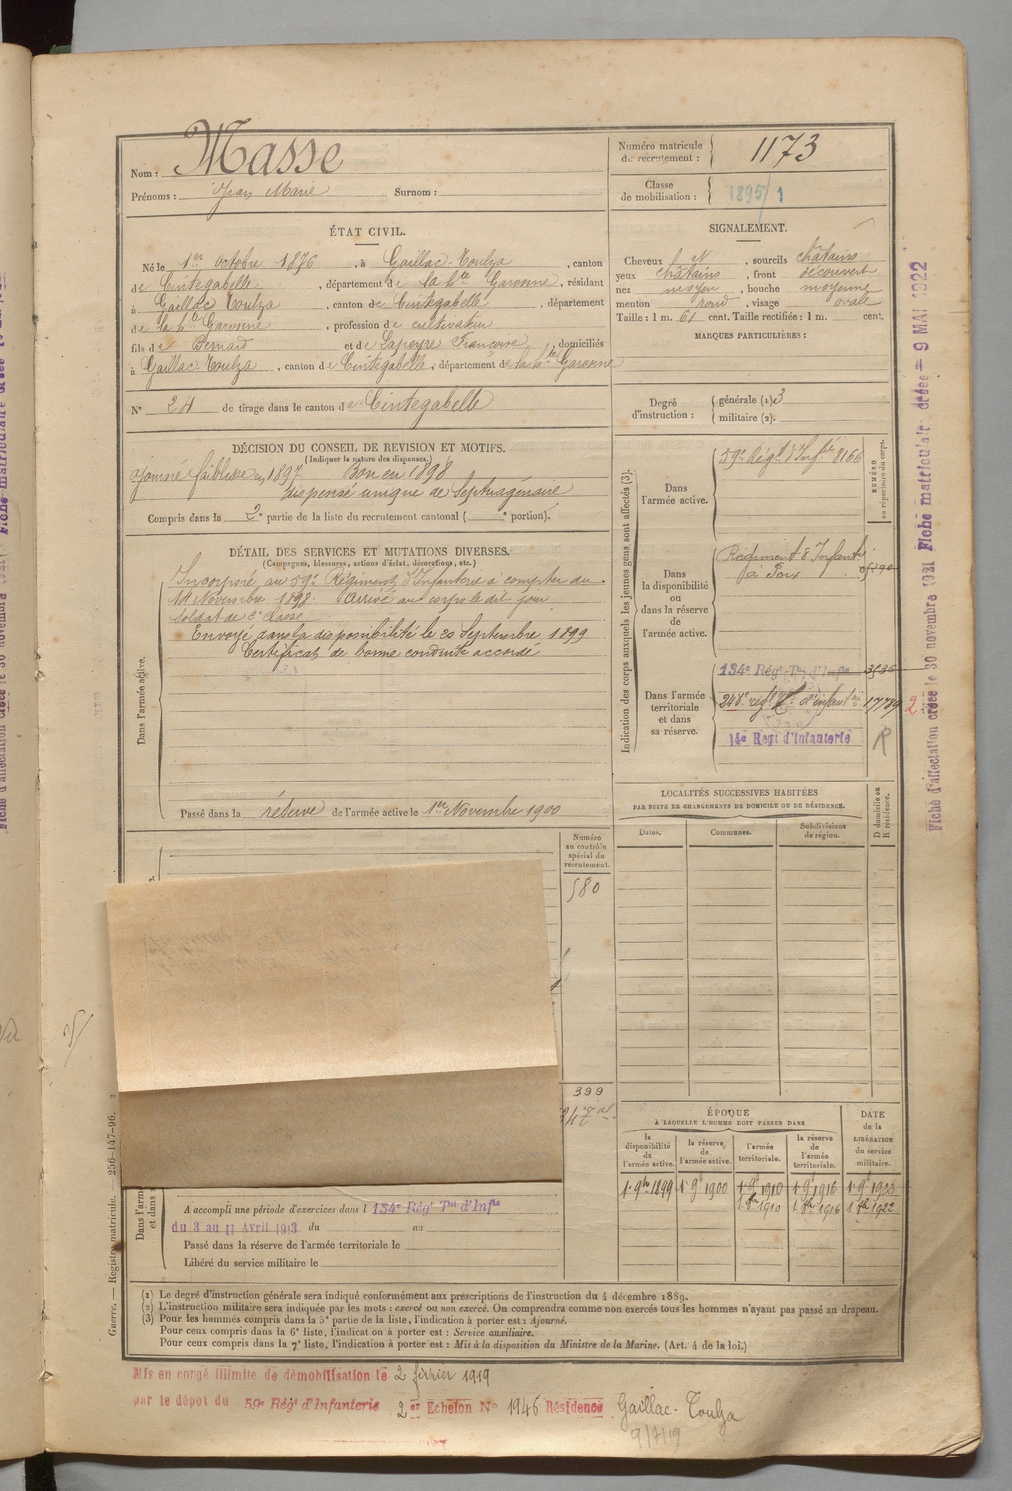 Nom : Masse
Prénoms : Jean Marie Surnom :
Numéro matricule de recrutement : 1173
Classe de mobilisation : 1895/1
ÉTAT CIVIL.
Né le 1er Octobre 1876, à Gaillac-Toulza, canton
de Cintegabelle, département de la Hte Garonne, résidant
à Gaillac Toulza, canton de Cintegabelle, département
de la Hte Garonne, profession de cultivateur
fils de Bernard et de Lapeyre Françoise, domiciliés
à Gaillac-Toulza, canton de Cintegabelle, département de la Hte Garonne
N° 24 de tirage dans le canton de Cintegabelle
SIGNALEMENT.
Cheveux et, sourcils châtains
yeux châtains, front découvert
nez moyen, bouche moyenne
menton rond, visage ovale
Taille : 1 m. 61 cent. Taille rectifiée : 1 m. cent.
MARQUES PARTICULIÈRES :
Degré d'instruction : générale (1) 3
militaire (2).
DÉCISION DU CONSEIL DE REVISION ET MOTIFS.
(Indiquer la nature des dispenses.)
ajourné faiblesse en 1897 Bon en 1898
dispensé unique de Septuagénaire
Compris dans la 2e partie de la liste du recrutement cantonal ( e portion).
DÉTAIL DES SERVICES ET MUTATIONS DIVERSES.
(Campagnes, blessures, actions d'éclat, décorations, etc.)
Dans l'armée active.
Incorporé au 59e Régiment d'Infanterie à compter du
14 Novembre 1898. Arrivé au corps le dit jour
Soldat de 2e classe
Envoyé dans la disponibilité le 20 Septembre 1899
Certificat de bonne conduite accordé
Passé dans la réserve de l'armée active le 1er Novembre 1900
Indication des corps auxquels les jeunes gens sont affectés (3).
NUMÉRO au répertoire du corps.
Dans l'armée active.
59e Régt d'Infrie 8166
Dans la disponibilité ou dans la réserve de l'armée active.
Régiment d'Infantie
à Foix
Dans l'armée territoriale et dans sa réserve.
134e Régt Tal d'Infie
248e régt d'infanterie 17789
14e Regt d'Infanterie
R
LOCALITÉS SUCCESSIVES HABITÉES
PAR SUITE DE CHANGEMENTS DE DOMICILE OU DE RÉSIDENCE.
Dates. Communes. Subdivisions de région. D domicile ou R résidence.
Numéro au contrôle spécial du recrutement.
580
399
ÉPOQUE
À LAQUELLE L'HOMME DOIT PASSER DANS
la disponibilité de l'armée active. la réserve de l'armée active. l'armée territoriale. la réserve de l'armée territoriale. DATE de la LIBÉRATION du service militaire.
1er 9bre 1899 1er 9b 1900 1er 9b 1910 1er 9b 1916 1er 9b 1923
1910 1916 1922
A accompli une période d'exercices dans l 134e Régt Tal d'Infie
du 3 au 11 Avril 1913 du au
Passé dans la réserve de l'armée territoriale le
Libéré du service militaire le
(1) Le degré d'instruction générale sera indiqué conformément aux prescriptions de l'instruction du 4 décembre 1889.
(2) L'instruction militaire sera indiquée par les mots : exercé ou non exercé. On comprendra comme non exercés tous les hommes n'ayant pas passé au drapeau.
(3) Pour les hommes compris dans la 5e partie de la liste, l'indication à porter est : Ajourné.
Pour ceux compris dans la 6e liste, l'indication à porter est : Service auxiliaire.
Pour ceux compris dans la 7e liste, l'indication à porter est : Mis à la disposition du Ministre de la Marine. (Art. 4 de la loi.)
Guerre. — Registre matricule. — 256-147-96.
Mis en congé illimité de démobilisation le 2 février 1919
par le dépot du 59e Régt d'Infanterie 2er Echelon N° 1946 Résidence Gaillac-Toulza
9/7/19
Fiche d'affectation créée le 30 novembre 1921 Fiche matriculair créée - 9 MAI 1922